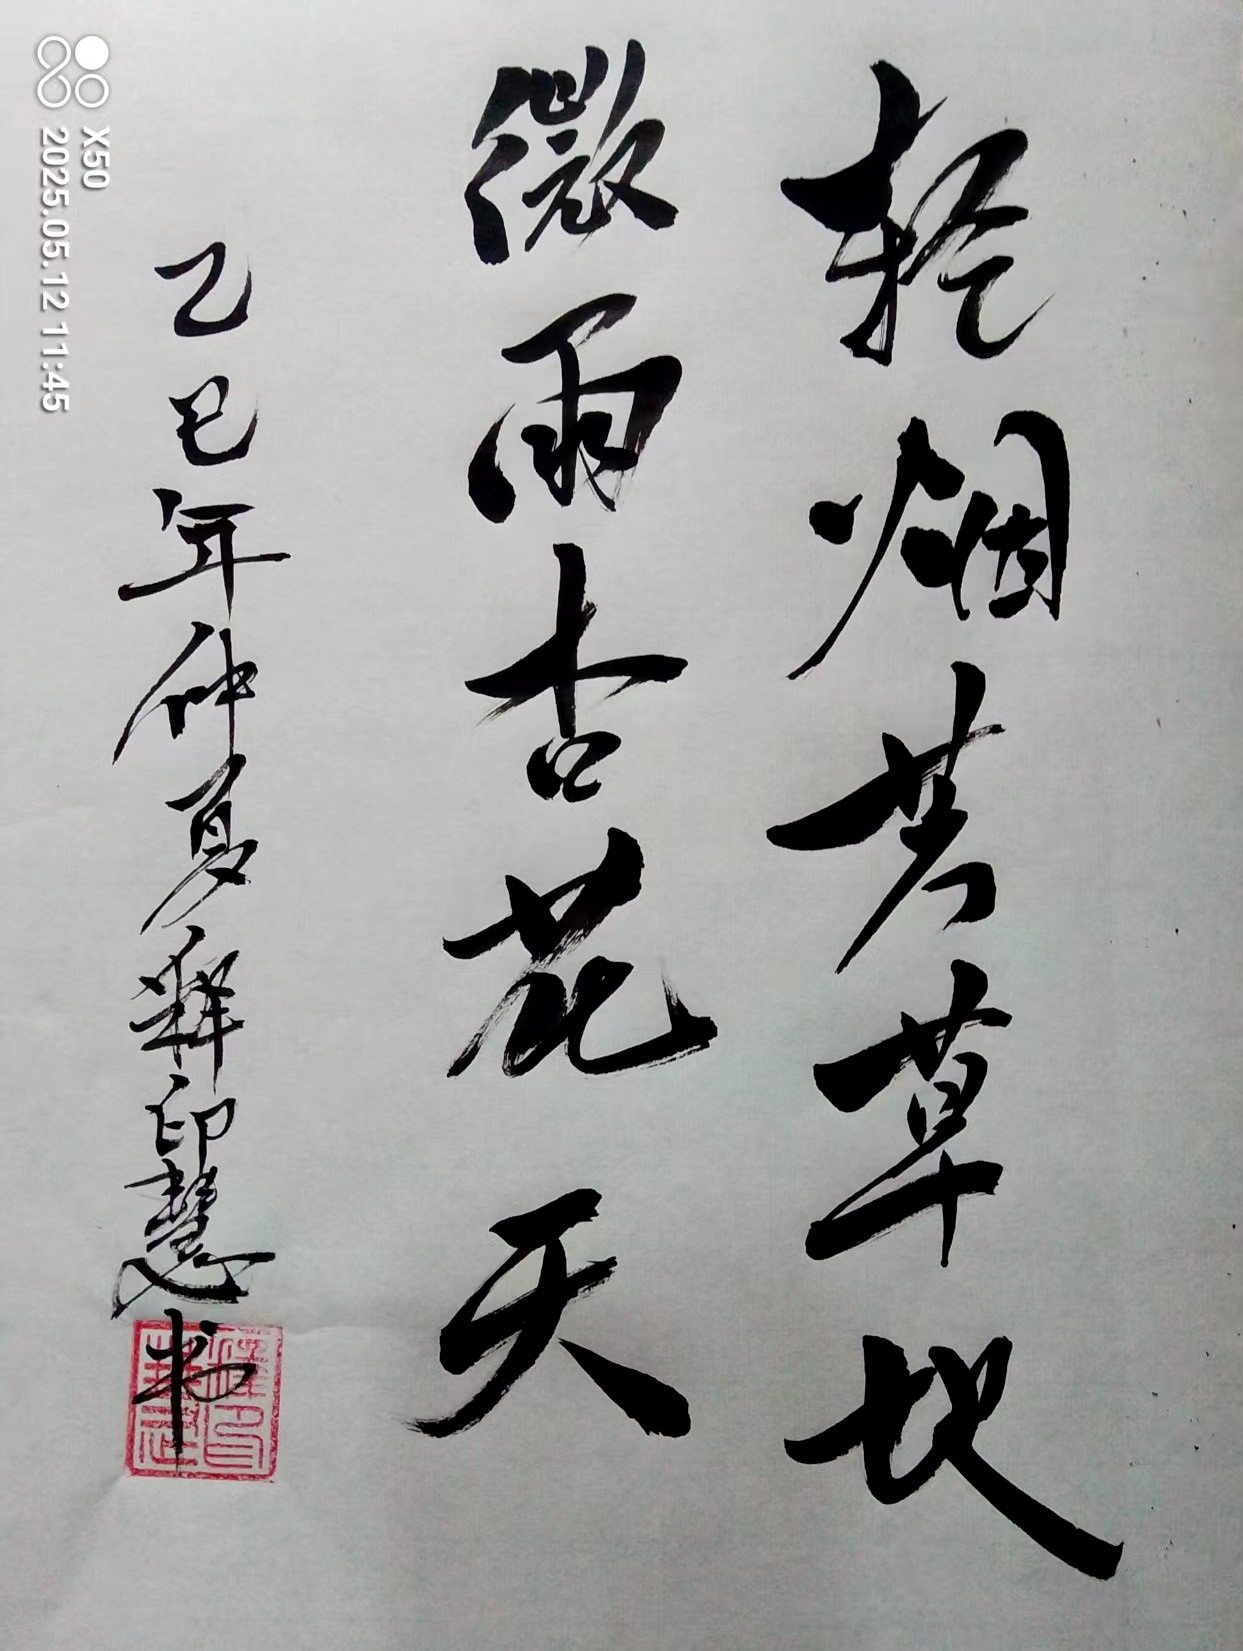 轻烟芳草地
微雨杏花天
乙巳年仲夏释印慧书
X50
2025.05.12 11:45